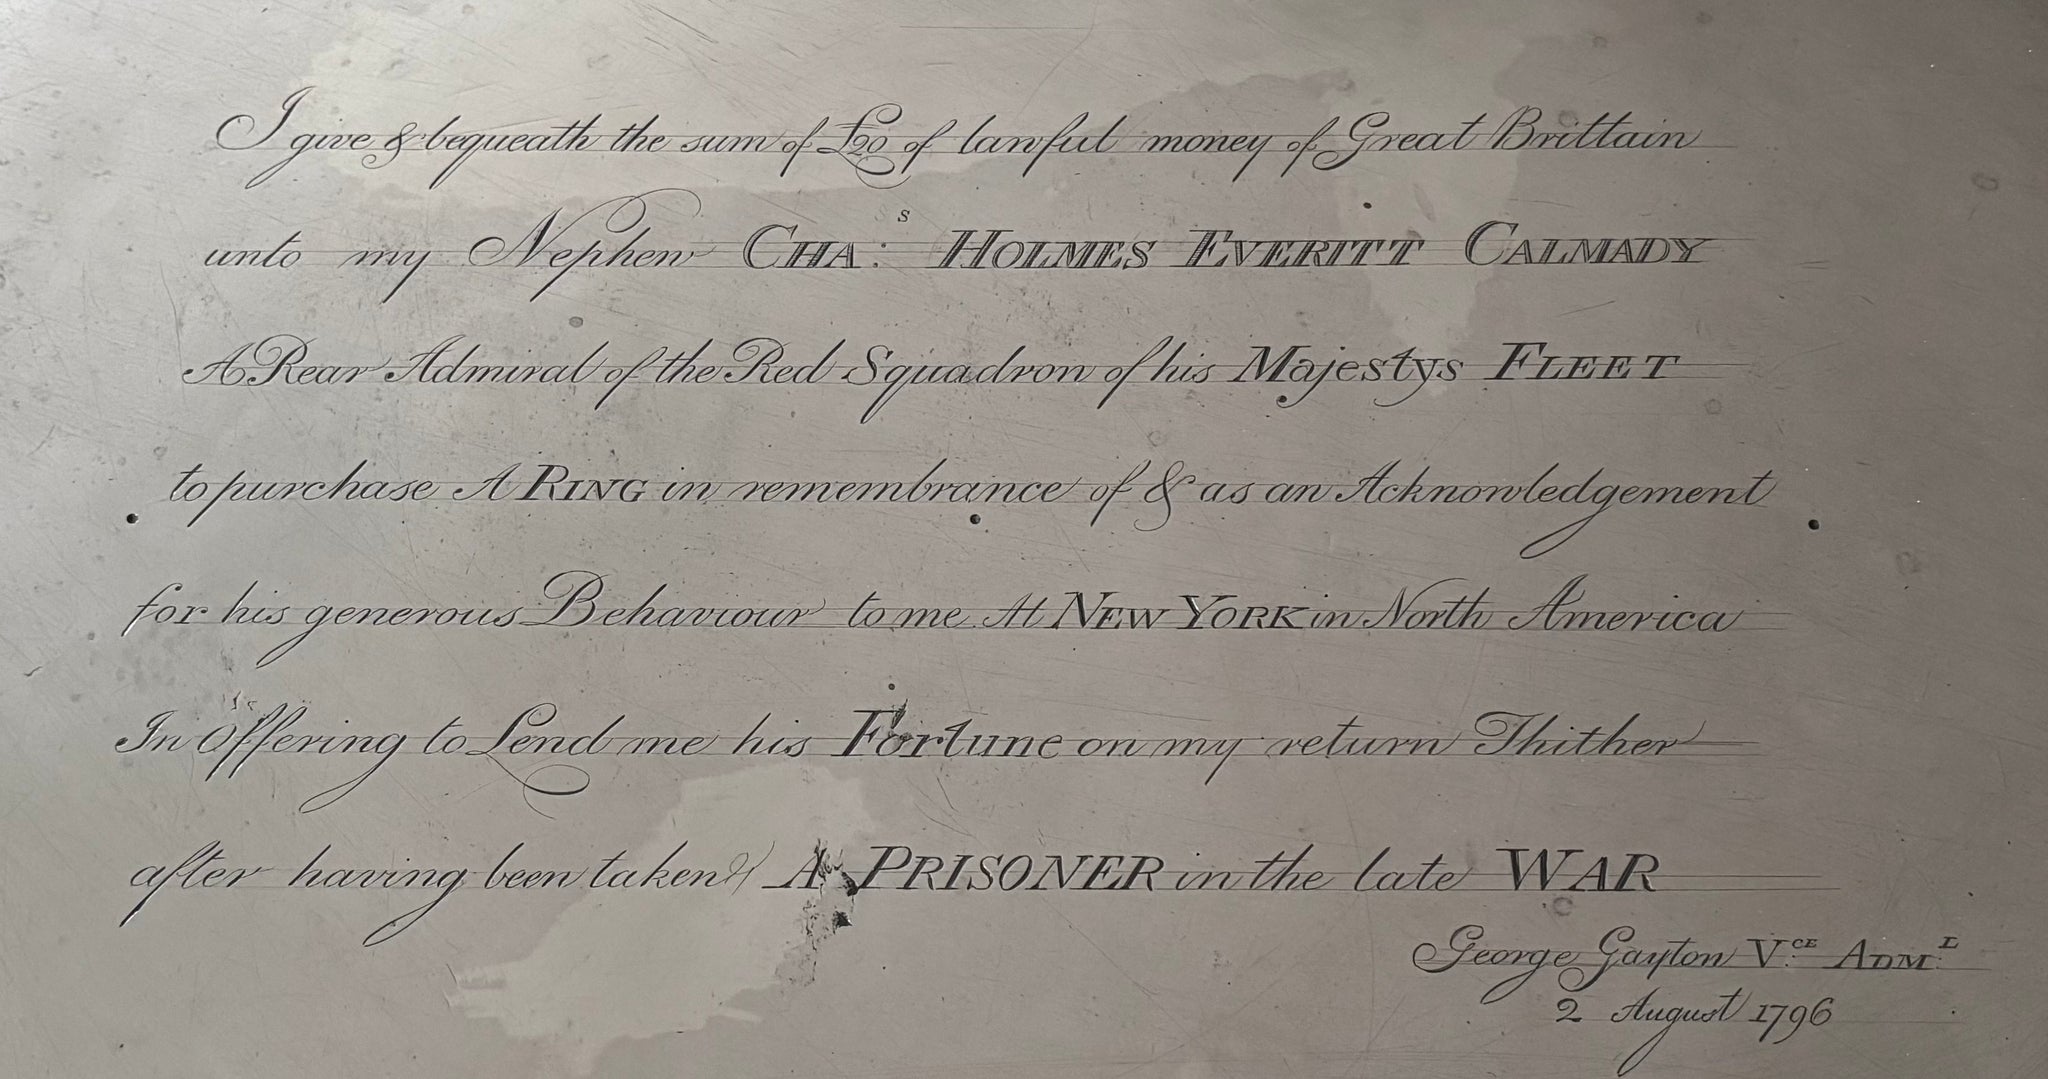 I give & bequeath the sum of £20 of lawful money of Great Brittain
unto my Nephew CHA:s HOLMES EVERITT CALMADY
A Rear Admiral of the Red Squadron of his Majestys FLEET
to purchase A RING in remembrance of & as an Acknowledgement
for his generous Behaviour to me At NEW YORK in North America
In Offering to Lend me his Fortune on my return Thither
after having been taken A PRISONER in the late WAR
George Gayton V.CE ADM.L
2 August 1796